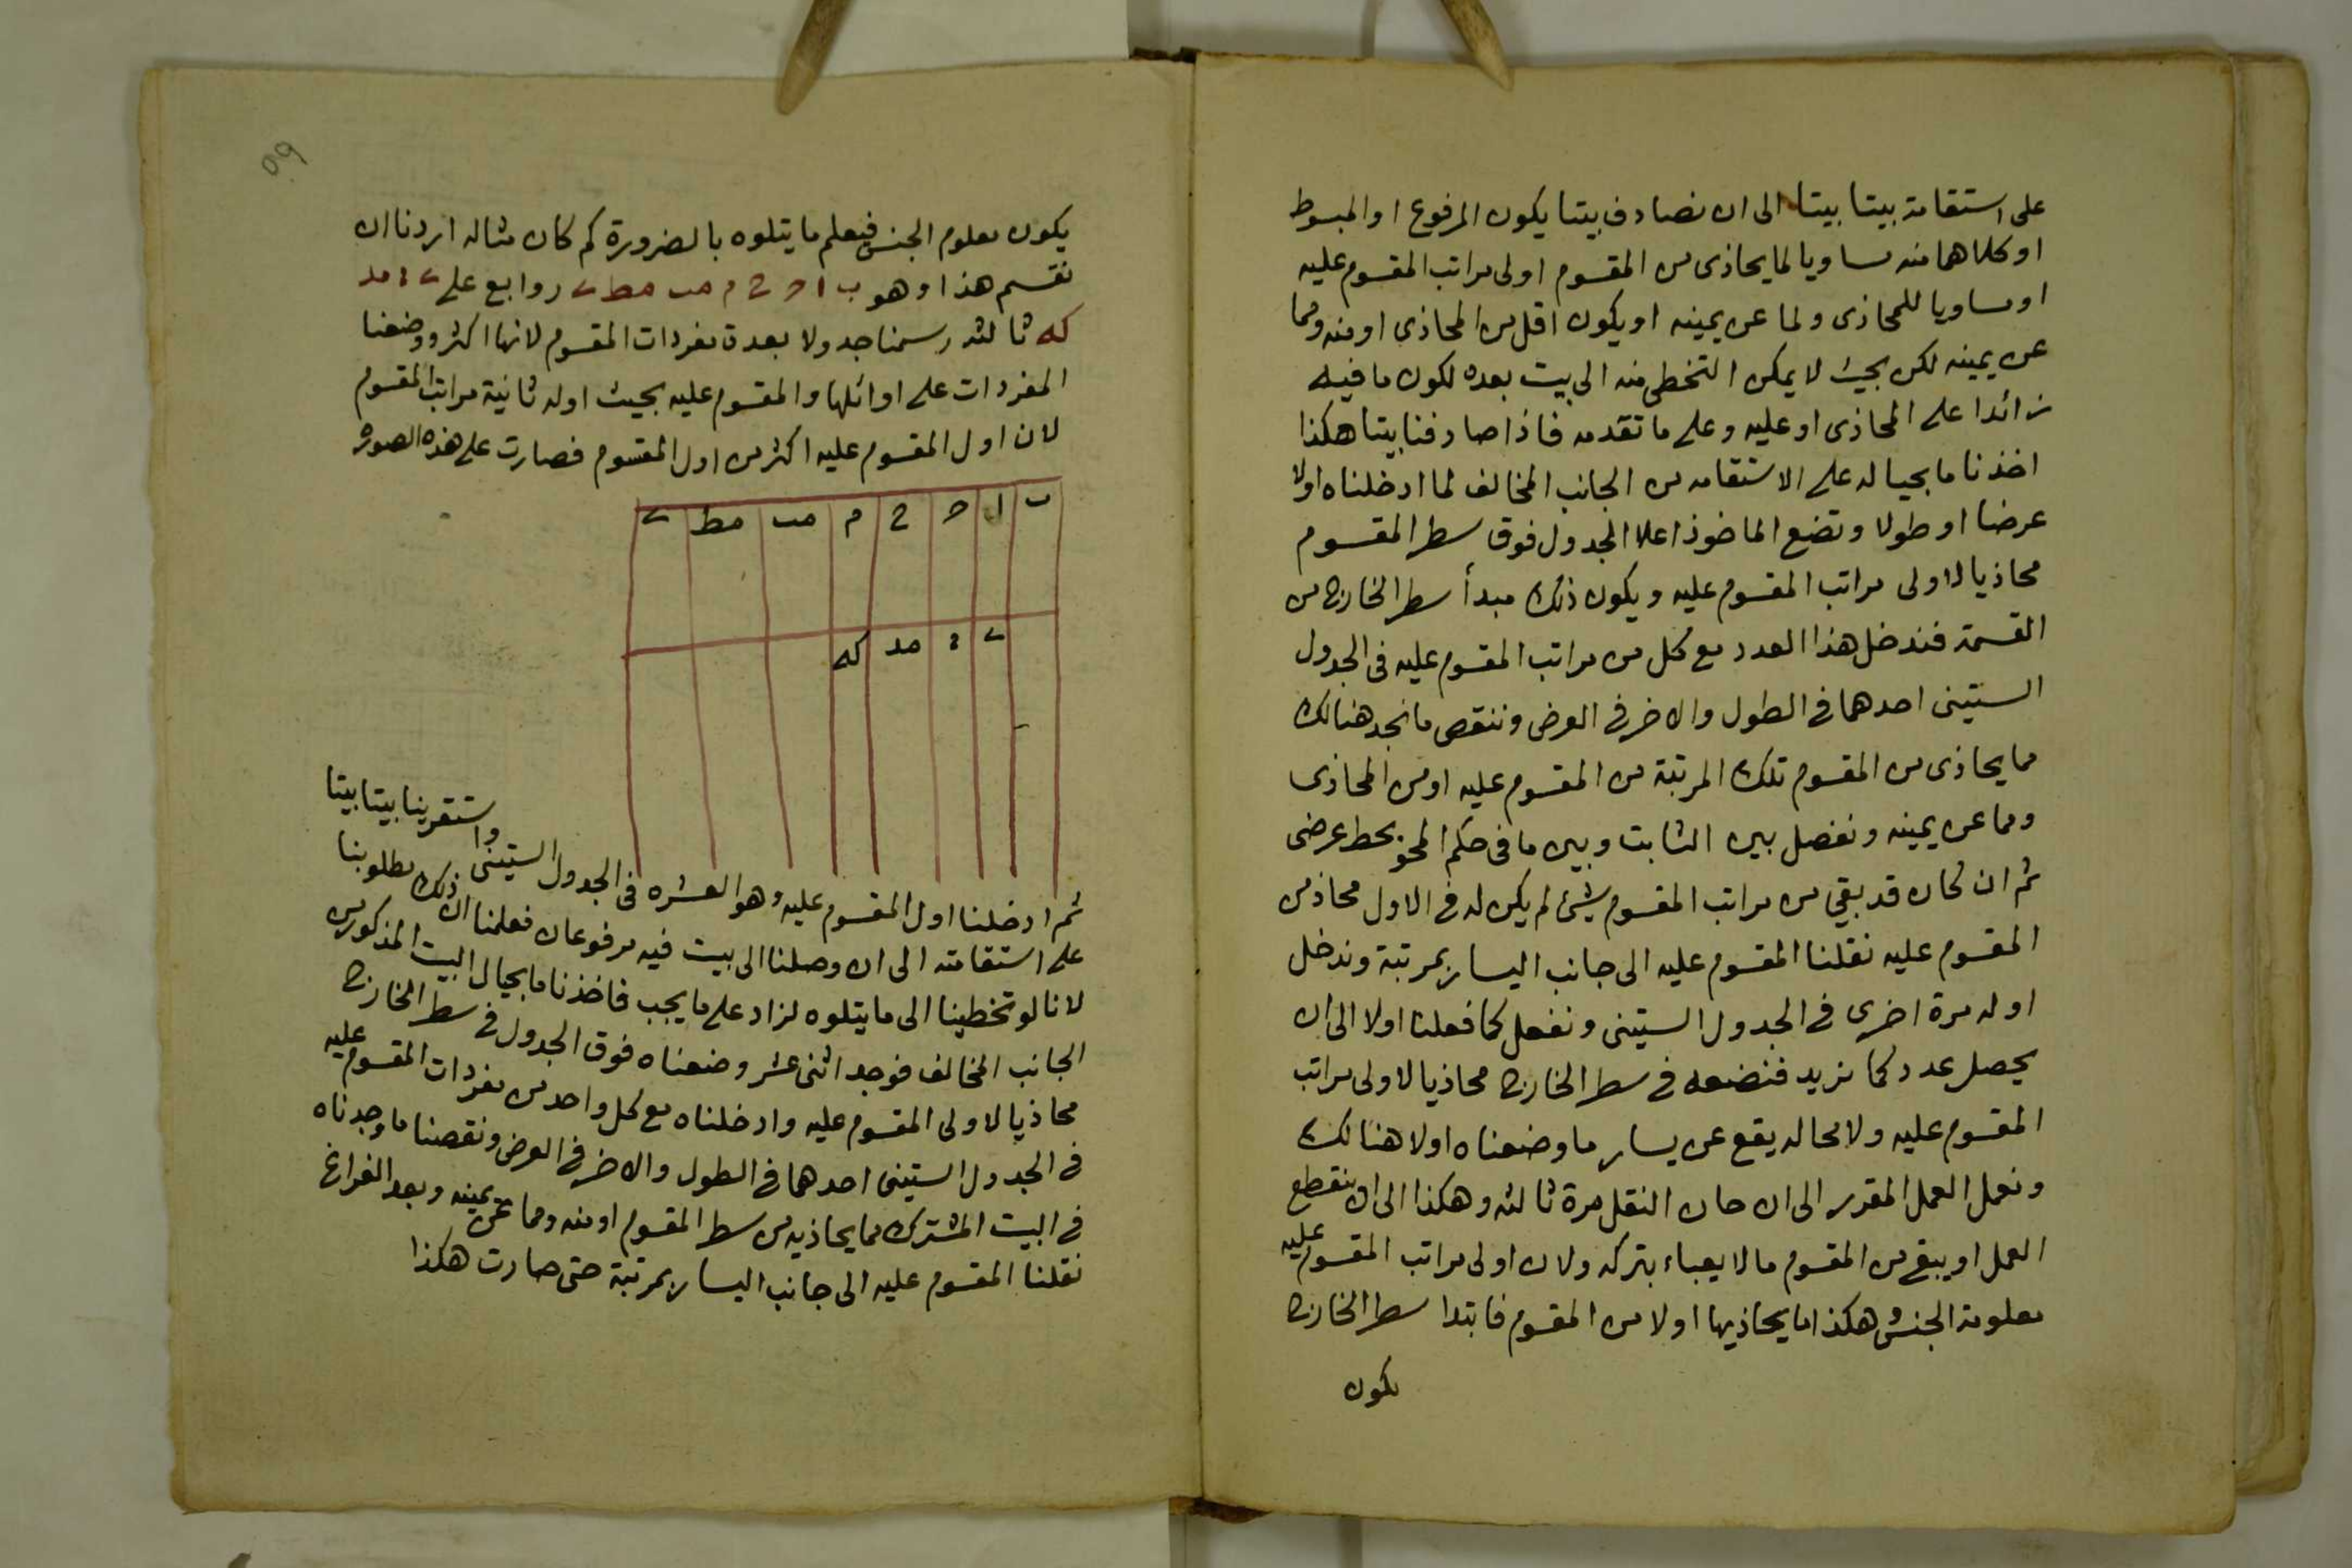 على استقامة بيتا بيتا الى ان نصادف بيتا يكون المرفوع او المبسوط
او كلاهما منه مساويا لما يحاذى من المقسوم اولى مراتب المقسوم عليه
او مساويا للمحاذى ولما عن يمينه او يكون اقل من المحاذى او منه ومما
عن يمينه لكن بحيث لا يمكن التخطى منه الى بيت بعده لكون ما فيه
زائدا على المحاذى او عليه وعلى ما تقدمه فاذا صادفنا بيتا هكذا
اخذنا ما بحياله على الاستقامه من الجانب المخالف لما ادخلناه اولا
عرضا او طولا ونضع الماخوذ اعلا الجدول فوق سطر المقسوم
محاذيا لاولى مراتب المقسوم عليه ويكون ذلك مبدأ سطر الخارج من
القسمة فندخل هذا العدد مع كل من مراتب المقسوم عليه فى الجدول
الستينى احدهما فى الطول والاخر فى العرض وننقص ما نجد هنالك
مما يحاذى من المقسوم تلك المرتبة من المقسوم عليه او من المحاذى
ومما عن يمينه ونفصل بين الثابت وبين ما فى حكم المحو بخط عرضى
ثم ان كان قد بقى من مراتب المقسوم شئ لم يكن له فى الاول محاذ من
المقسوم عليه نقلنا المقسوم عليه الى جانب اليسار بمرتبة وندخل
اوله مرة اخرى فى الجدول الستينى ونفعل كما فعلنا اولا الى ان
يحصل عدد كما نريد فنضعه فى سطر الخارج محاذيا لاولى مراتب
المقسوم عليه ولا محاله يقع عن يسار ما وضعناه اولا هنالك
ونعمل العمل المقدر الى ان حان النقل مرة ثالثه وهكذا الى ان ينقطع
العمل او يبقى من المقسوم ما لا يعباء بتركه ولان اولى مراتب المقسوم عليه
معلومة الجنس وهكذا ما يحاذيها اولا من المقسوم فابتدا سطر الخارج
يكون
٥٩
يكون معلوم الجنس فيعلم ما يتلوه بالضرورة كم كان مثاله اردنا ان
نقسم هذا وهو ب ا ح ح م مب مط ى روابع على ى ؛ مد
كه ثالثه رسمنا جدولا بعدة مفردات المقسوم لانها اكثر ووضعنا
المفردات على اوائلها والمقسوم عليه بحيث اوله ثانية مراتب المقسوم
لان اول المقسوم عليه اكثر من اول المقسوم فصارت على هذه الصوره
ب ا ح ح م مب مط ى
ى ؛ مد كه
ثم ادخلنا اول المقسوم عليه وهو العشره فى الجدول الستينى واستقرينا بيتا بيتا
على استقامته الى ان وصلنا الى بيت فيه مرفوعان فعلمنا ان ذلك مطلوبنا
لانا لو تخطينا الى ما يتلوه لزاد على ما يجب فاخذنا ما بحيال البيت المذكور من
الجانب المخالف فوجد اثنى عشر وضعناه فوق الجدول فى سطر الخارج
محاذيا لاولى المقسوم عليه وادخلناه مع كل واحد من مفردات المقسوم عليه
فى الجدول الستينى احدهما فى الطول والاخر فى العرض ونقصنا ما وجدناه
فى البيت المشترك مما يحاذيه من سطر المقسوم او منه ومما عن يمينه وبعد الفراغ
نقلنا المقسوم عليه الى جانب اليسار بمرتبة حتى صارت هكذا